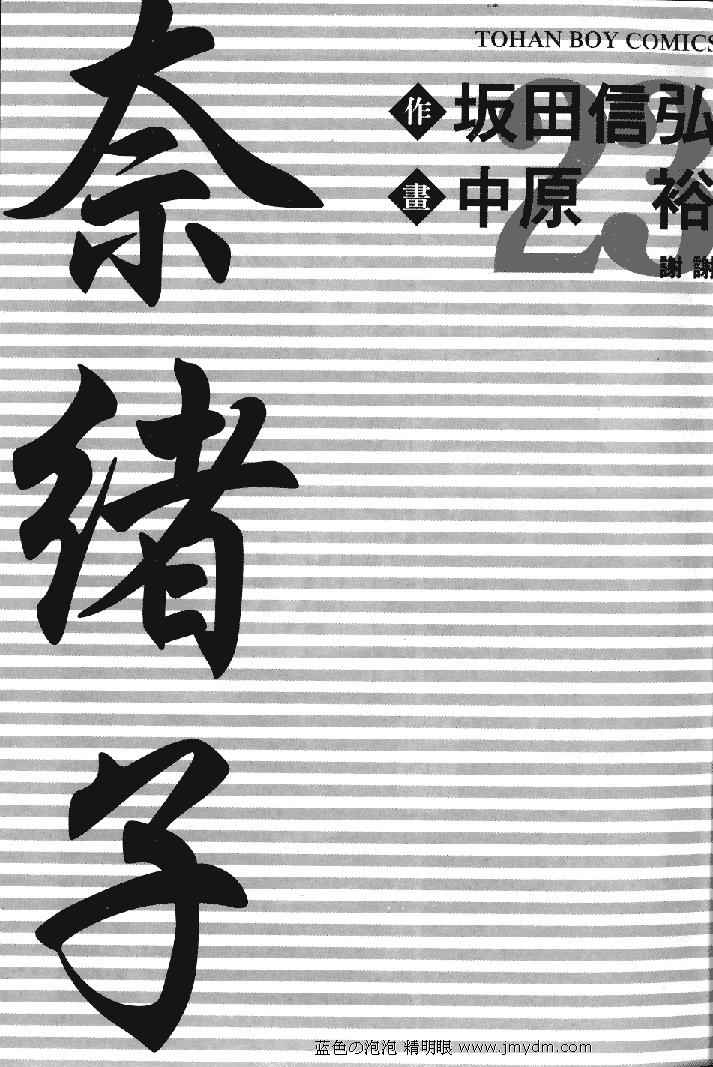 奈緒子
TOHAN BOY COMICS
23
作 坂田信弘
畫 中原 裕
謝謝
蓝色の泡泡 精明眼 www.jmydm.com